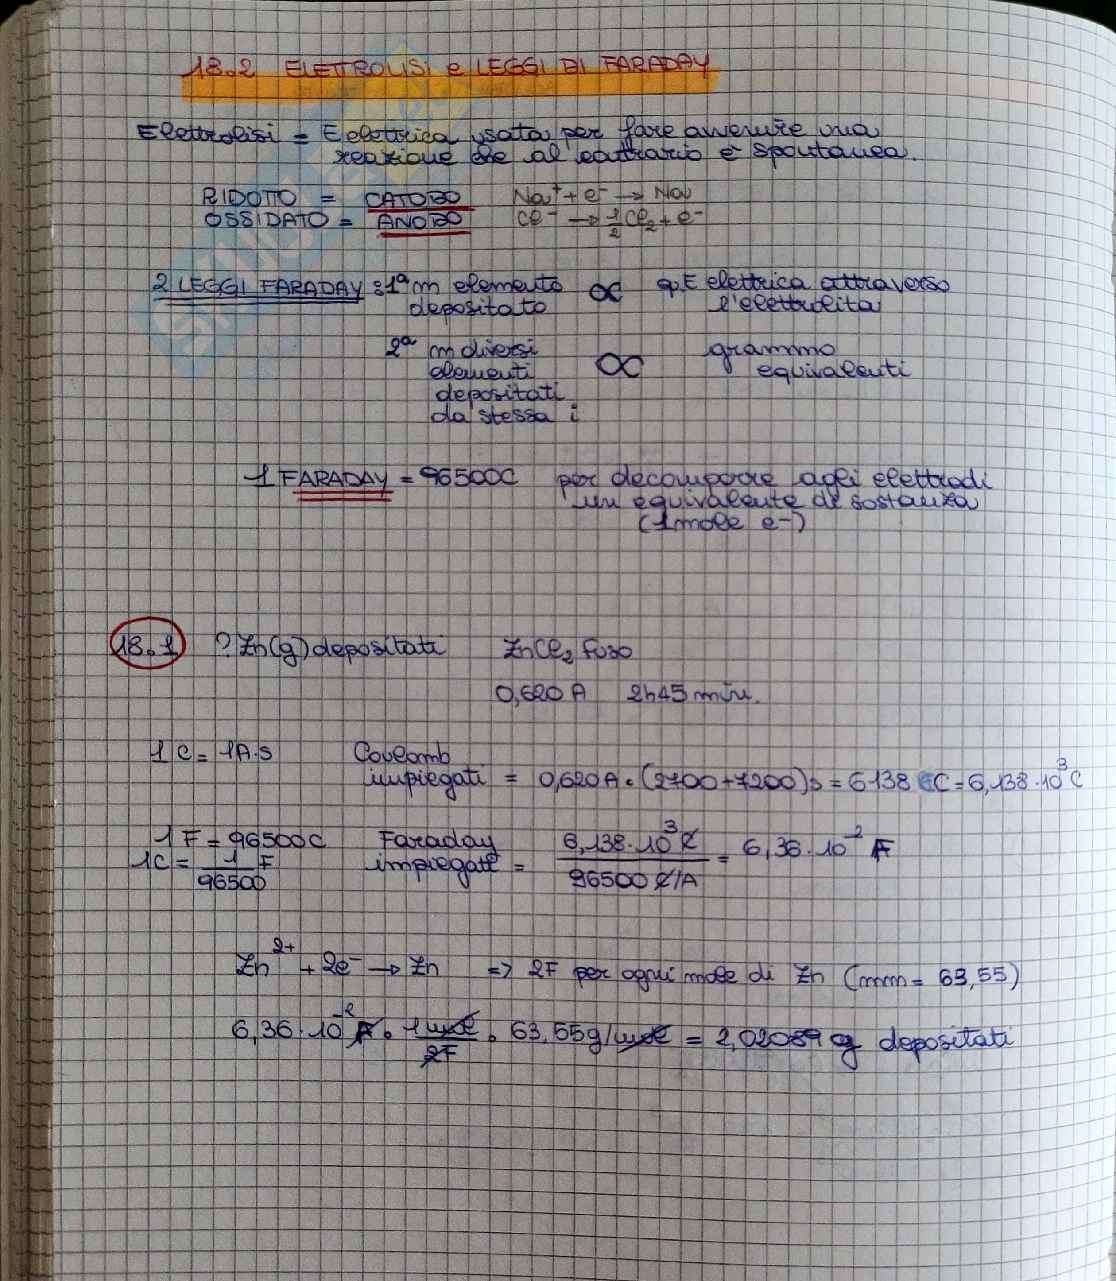 18.2 ELETTROLISI e LEGGI DI FARADAY
Elettrolisi = E elettrica usata per fare avvenire una
reazione che al contrario è spontanea.
RIDOTTO = CATODO Na⁺ + e⁻ → Na
OSSIDATO = ANODO Cl⁻ → 1/2 Cl₂ + e⁻
2 LEGGI FARADAY : 1ª m elemento ∝ q. E elettrica attraverso
depositato l'elettrolita
2ª m diversi ∝ grammo
elementi equivalenti
depositati
da stessa i
1 FARADAY = 96500C per decomporre agli elettrodi
un equivalente di sostanza
(1 mole e-)
18.1 ? Zn(g) depositati ZnCl₂ fuso
0,620 A 2h45 min.
1 C = 1A·s Coulomb
impiegati = 0,620A · (2700+7200)s = 6138 C = 6,138·10³ C
1 F = 96500C Faraday 6,138·10³ C
1C = 1/96500 F impiegati = 96500 C/A = 6,36·10⁻² F
Zn²⁺ + 2e⁻ → Zn => 2F per ogni mole di Zn (mm = 63,55)
6,36·10⁻² F · 1 mol/2F · 63,55g/mol = 2,02089 g depositati